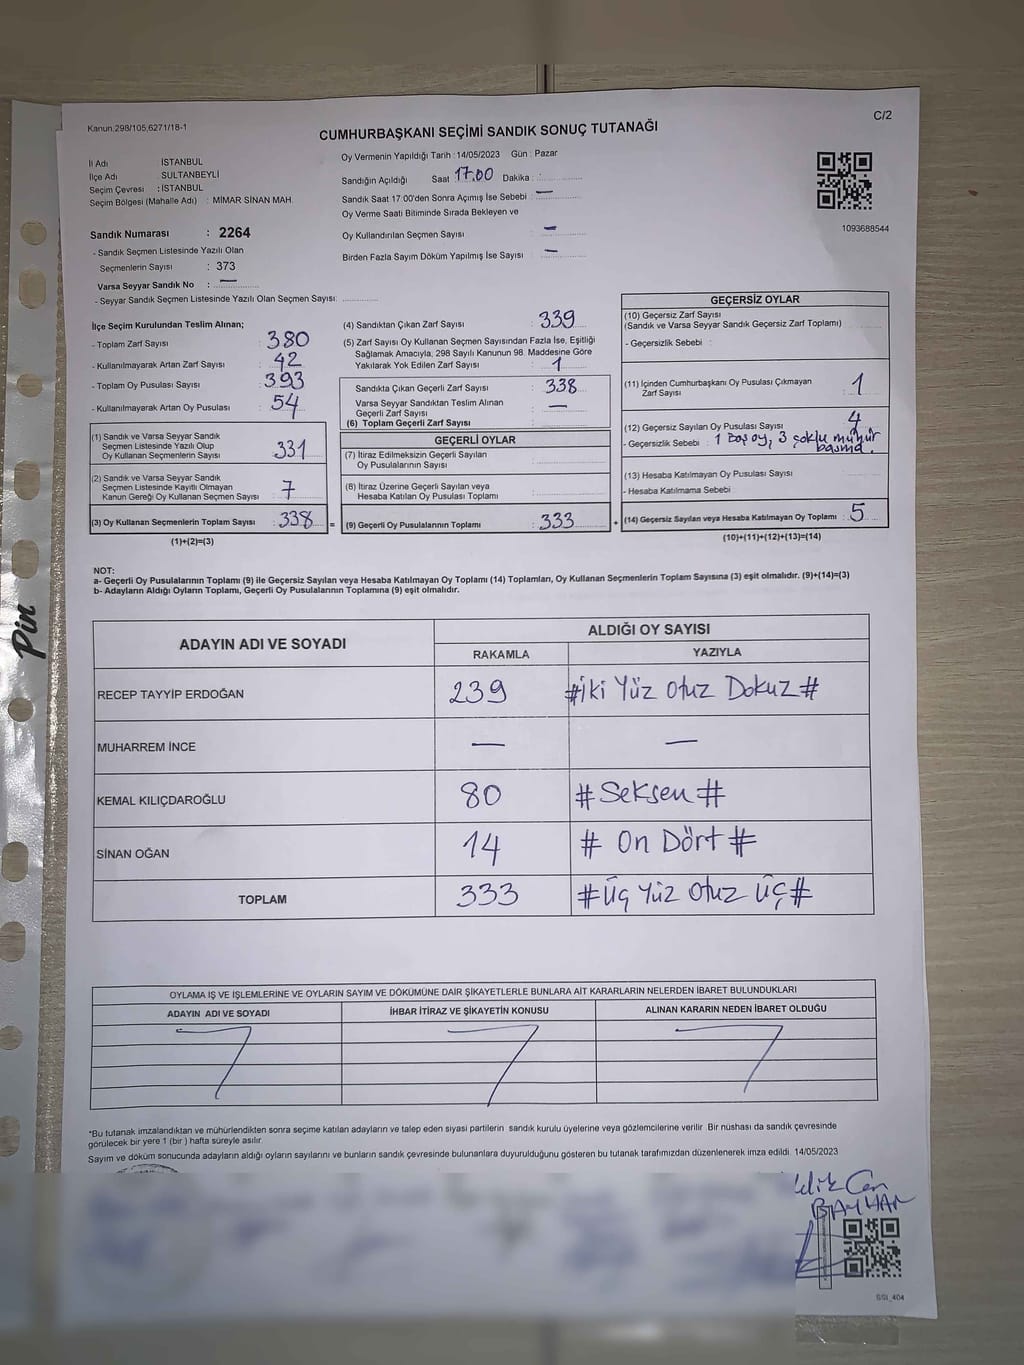 Kanun:298/105,6271/18-1
C/2
CUMHURBAŞKANI SEÇİMİ SANDIK SONUÇ TUTANAĞI
İl Adı : İSTANBUL
İlçe Adı : SULTANBEYLİ
Seçim Çevresi : İSTANBUL
Seçim Bölgesi (Mahalle Adı) : MİMAR SİNAN MAH.
Sandık Numarası : 2264
- Sandık Seçmen Listesinde Yazılı Olan
Seçmenlerin Sayısı : 373
Varsa Seyyar Sandık No : —
- Seyyar Sandık Seçmen Listesinde Yazılı Olan Seçmen Sayısı:
Oy Vermenin Yapıldığı Tarih : 14/05/2023 Gün : Pazar
Sandığın Açıldığı Saat 17.00 Dakika :
Sandık Saat 17:00'den Sonra Açımış İse Sebebi : —
Oy Verme Saati Bitiminde Sırada Bekleyen ve
Oy Kullandırılan Seçmen Sayısı : —
Birden Fazla Sayım Döküm Yapılmış İse Sayısı : —
1093688544
İlçe Seçim Kurulundan Teslim Alınan;
- Toplam Zarf Sayısı : 380
- Kullanılmayarak Artan Zarf Sayısı : 42
- Toplam Oy Pusulası Sayısı : 393
- Kullanılmayarak Artan Oy Pusulası : 54
(1) Sandık ve Varsa Seyyar Sandık
Seçmen Listesinde Yazılı Olup
Oy Kullanan Seçmenlerin Sayısı : 331
(2) Sandık ve Varsa Seyyar Sandık
Seçmen Listesinde Kayıtlı Olmayan
Kanun Gereği Oy Kullanan Seçmen Sayısı : 7
(3) Oy Kullanan Seçmenlerin Toplam Sayısı : 338 =
(1)+(2)=(3)
(4) Sandıktan Çıkan Zarf Sayısı : 339
(5) Zarf Sayısı Oy Kullanan Seçmen Sayısından Fazla İse, Eşitliği
Sağlamak Amacıyla, 298 Sayılı Kanunun 98. Maddesine Göre
Yakılarak Yok Edilen Zarf Sayısı : 1
Sandıkta Çıkan Geçerli Zarf Sayısı : 338
Varsa Seyyar Sandıktan Teslim Alınan
Geçerli Zarf Sayısı : —
(6) Toplam Geçerli Zarf Sayısı :
GEÇERLİ OYLAR
(7) İtiraz Edilmeksizin Geçerli Sayılan
Oy Pusulalarının Sayısı :
(8) İtiraz Üzerine Geçerli Sayılan veya
Hesaba Katılan Oy Pusulası Toplamı :
(9) Geçerli Oy Pusulalarının Toplamı : 333 +
GEÇERSİZ OYLAR
(10) Geçersiz Zarf Sayısı
(Sandık ve Varsa Seyyar Sandık Geçersiz Zarf Toplamı) :
- Geçersizlik Sebebi :
(11) İçinden Cumhurbaşkanı Oy Pusulası Çıkmayan
Zarf Sayısı : 1
(12) Geçersiz Sayılan Oy Pusulası Sayısı : 4
- Geçersizlik Sebebi : 1 Boş oy, 3 çoklu mühür
basma.
(13) Hesaba Katılmayan Oy Pusulası Sayısı :
- Hesaba Katılmama Sebebi :
(14) Geçersiz Sayılan veya Hesaba Katılmayan Oy Toplamı : 5
(10)+(11)+(12)+(13)=(14)
NOT:
a- Geçerli Oy Pusulalarının Toplamı (9) ile Geçersiz Sayılan veya Hesaba Katılmayan Oy Toplamı (14) Toplamları, Oy Kullanan Seçmenlerin Toplam Sayısına (3) eşit olmalıdır. (9)+(14)=(3)
b- Adayların Aldığı Oyların Toplamı, Geçerli Oy Pusulalarının Toplamına (9) eşit olmalıdır.
Pin
ADAYIN ADI VE SOYADI
ALDIĞI OY SAYISI
RAKAMLA YAZIYLA
RECEP TAYYİP ERDOĞAN 239 #İki Yüz Otuz Dokuz#
MUHARREM İNCE — —
KEMAL KILIÇDAROĞLU 80 #Seksen#
SİNAN OĞAN 14 # On Dört #
TOPLAM 333 #Üç Yüz Otuz Üç#
OYLAMA İŞ VE İŞLEMLERİNE VE OYLARIN SAYIM VE DÖKÜMÜNE DAİR ŞİKAYETLERLE BUNLARA AİT KARARLARIN NELERDEN İBARET BULUNDUKLARI
ADAYIN ADI VE SOYADI İHBAR İTİRAZ VE ŞİKAYETİN KONUSU ALINAN KARARIN NEDEN İBARET OLDUĞU
*Bu tutanak imzalandıktan ve mühürlendikten sonra seçime katılan adayların ve talep eden siyasi partilerin sandık kurulu üyelerine veya gözlemcilerine verilir. Bir nüshası da sandık çevresinde
görülecek bir yere 1 (bir ) hafta süreyle asılır.
Sayım ve döküm sonucunda adayların aldığı oyların sayılarını ve bunların sandık çevresinde bulunanlara duyurulduğunu gösteren bu tutanak tarafımızdan düzenlenerek imza edildi. 14/05/2023
BAYHAN
SSI_404